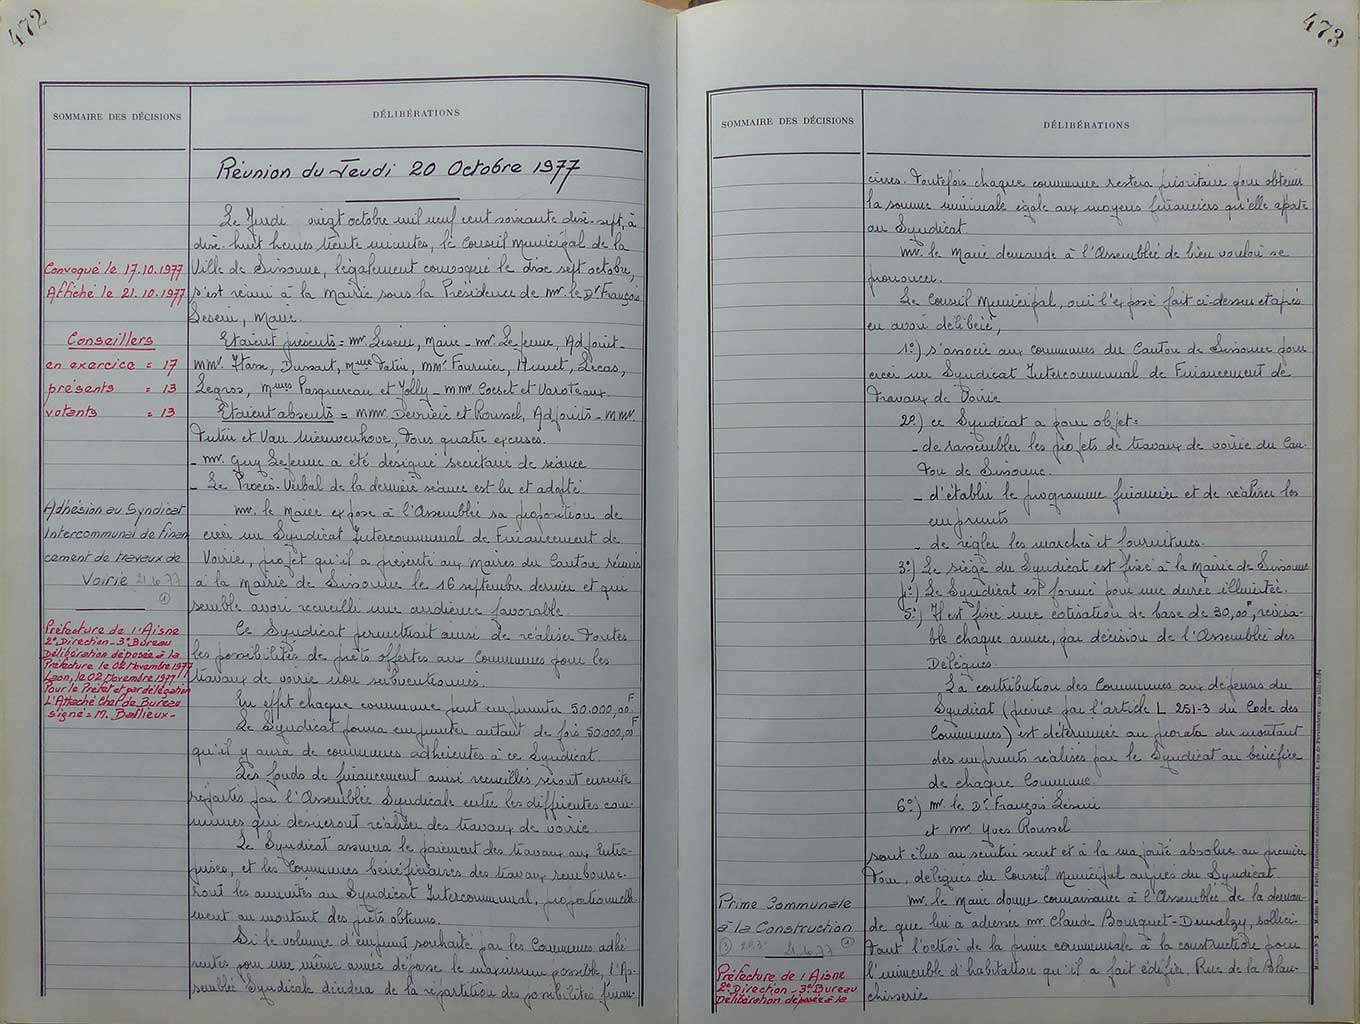 472
SOMMAIRE DES DÉCISIONS
DÉLIBÉRATIONS
Réunion du Jeudi 20 Octobre 1977
Le Jeudi vingt octobre mil neuf cent soixante dix-sept, à
dix-huit heures trente minutes, le Conseil Municipal de la
Ville de Sissonne, légalement convoqué le dix sept octobre,
s'est réuni à la Mairie sous la Présidence de Mr. le Dr François
Maire.
Convoqué le 17.10.1977
Affiché le 21.10.1977
Conseillers
en exercice = 17
présents = 13
votants = 13
Etaient présents = Mr. Maire - Mr. Lejeune, Adjoint -
MMr. Dussart, Mme MMr. Fournier, Lucas,
Legros, Mmes Pasquereau et Jolly - MMr. et
Etaient absents = MMr. et Roussel, Adjoints - MMr.
et Van Nieuwenhove, Tous quatre excusés.
- Mr. Guy Lejeune a été désigné secrétaire de séance
- Le Procès-Verbal de la dernière séance est lu et adopté
Adhésion au Syndicat
Intercommunal de Finan
cement de travaux de
Voirie 21.6.77
①
Mr. le Maire expose à l'Assemblée sa proposition de
créer un Syndicat Intercommunal de Financement de
Voirie, projet qu'il a présenté aux Maires du Canton réunis
à la Mairie de Sissonne le 16 septembre dernier et qui
semble avoir recueilli une audience favorable.
Ce Syndicat permettrait ainsi de réaliser toutes
les possibilités de prêts offertes aux Communes pour les
travaux de voirie non subventionnés.
En effet chaque commune peut emprunter 50.000,00F
Le Syndicat pourra emprunter autant de fois 50.000,00F
qu'il y aura de communes adhérentes à ce Syndicat.
Les fonds de financement ainsi recueillis seront ensuite
répartis par l'Assemblée Syndicale entre les différentes com-
munes qui désireront réaliser des travaux de voirie.
Le Syndicat assurera le paiement des travaux aux Entre-
prises, et les Communes bénéficiaires des travaux rembourse-
ront les annuités au Syndicat Intercommunal, proportionnelle-
ment au montant des prêts obtenus.
Si le volume d'emprunt souhaité par les Communes adhé
rentes pour une même année dépasse le maximum possible, l'As-
semblée Syndicale décidera de la répartition des possibilités finan-
Préfecture de l'Aisne
2e Direction - 3e Bureau
Délibération déposée à la
Préfecture le 02 Novembre 1977
Laon, le 02 Novembre 1977
Pour le Préfet et par délégation
L'Attaché Chef de Bureau
signé = M. Baillieux -
473
SOMMAIRE DES DÉCISIONS
DÉLIBÉRATIONS
cières. Toutefois chaque commune restera prioritaire pour obtenir
la somme minimale égale aux moyens financiers qu'elle apporte
au Syndicat.
Mr. le Maire demande à l'Assemblée de bien vouloir se
prononcer.
Le Conseil Municipal, ouï l'exposé fait ci-dessus et après
en avoir délibéré,
1°) s'associe aux communes du Canton de Sissonne pour
créer un Syndicat Intercommunal de Financement de
Travaux de Voirie
2°) ce Syndicat a pour objet =
- de rassembler les projets de travaux de voirie du Can-
ton de Sissonne.
- d'établir le programme financier et de réaliser les
emprunts
- de régler les marchés et fournitures.
3°) Le siège du Syndicat est fixé à la Mairie de Sissonne
4°) Le Syndicat est formé pour une durée illimitée.
5°) Il est fixé une cotisation de base de 30,00F, révisa-
ble chaque année, par décision de l'Assemblée des
Délégués.
La contribution des Communes aux dépenses du
Syndicat (prévue par l'article L 251-3 du Code des
Communes) est déterminée au prorata du montant
des emprunts réalisés par le Syndicat au bénéfice
de chaque Commune.
6°) Mr. le Dr François
et Mr. Yves Roussel
sont élus au scrutin secret et à la majorité absolue au premier
tour, délégués du Conseil Municipal auprès du Syndicat.
Prime Communale
à la Construction
21.6.77
Mr. le Maire donne connaissance à l'Assemblée de la deman-
de que lui a adressée Mr. Claude sollici-
tant l'octroi de la prime communale à la construction pour
l'immeuble d'habitation qu'il a fait édifier, Rue de la Blan-
chisserie
Préfecture de l'Aisne
2e Direction - 3e Bureau
Délibération déposée à la